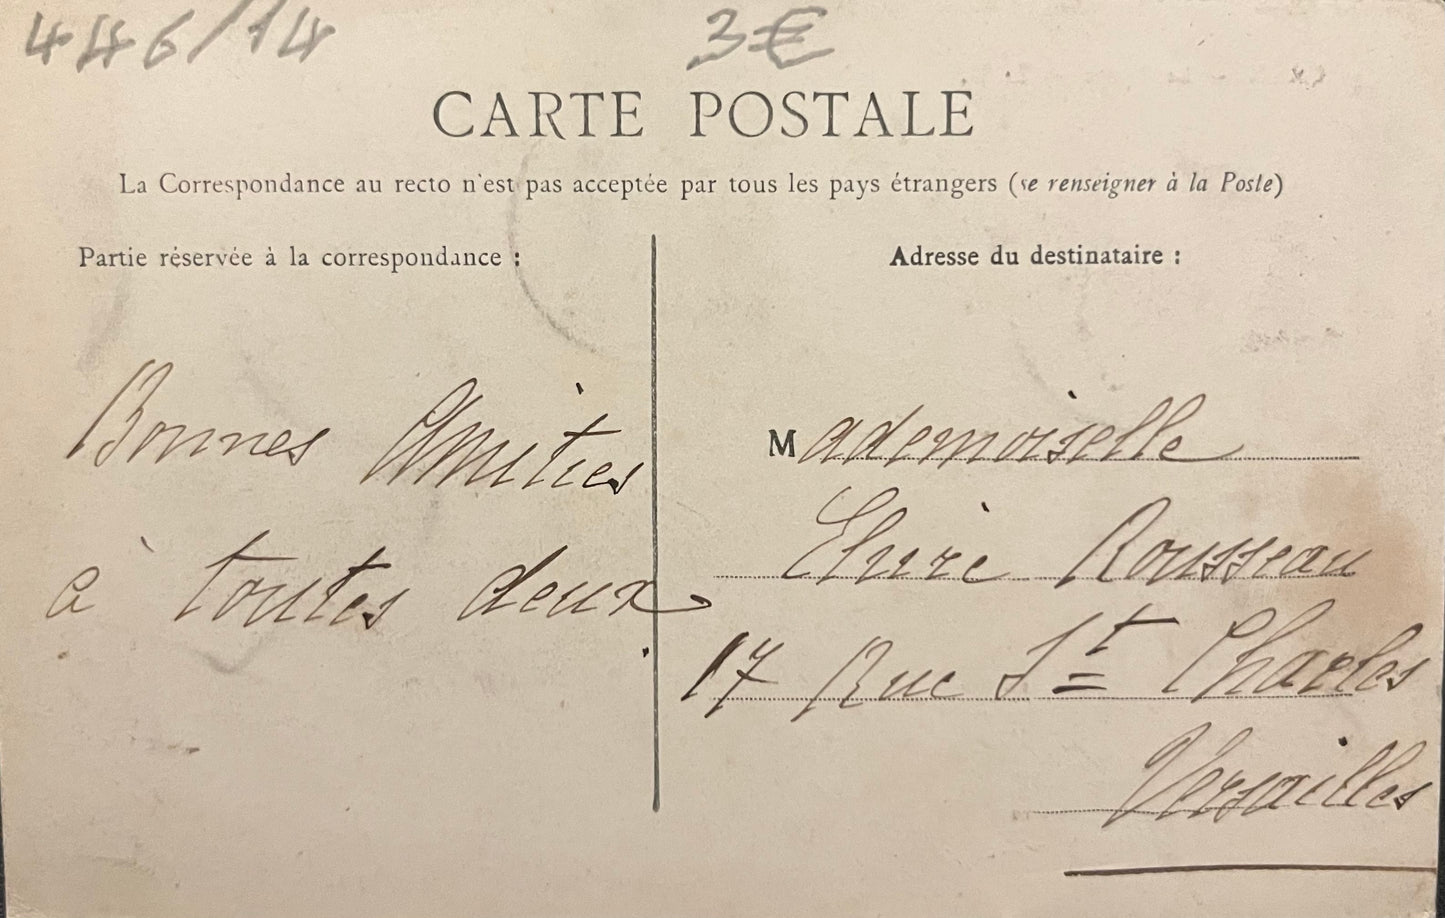 446/14
3€
CARTE POSTALE
La Correspondance au recto n'est pas acceptée par tous les pays étrangers (se renseigner à la Poste)
Partie réservée à la correspondance :
Bonnes Amities
à toutes deux
Adresse du destinataire :
Mademoiselle
Rousseau
17 Rue St Charles
Versailles